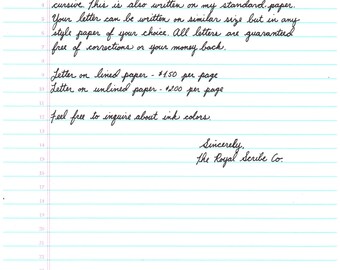 cursive. This is also written on my standard paper.
Your letter can be written on similar size but in any
style paper of your choice. All letters are guaranteed
free of corrections or your money back.
Letter on lined paper - $1.50 per page
Letter on unlined paper - $2.00 per page
Feel free to inquire about ink colors.
Sincerely,
The Royal Scribe Co.